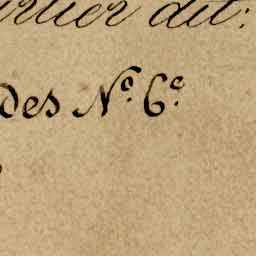 rtier dit:
des N.º 6.º